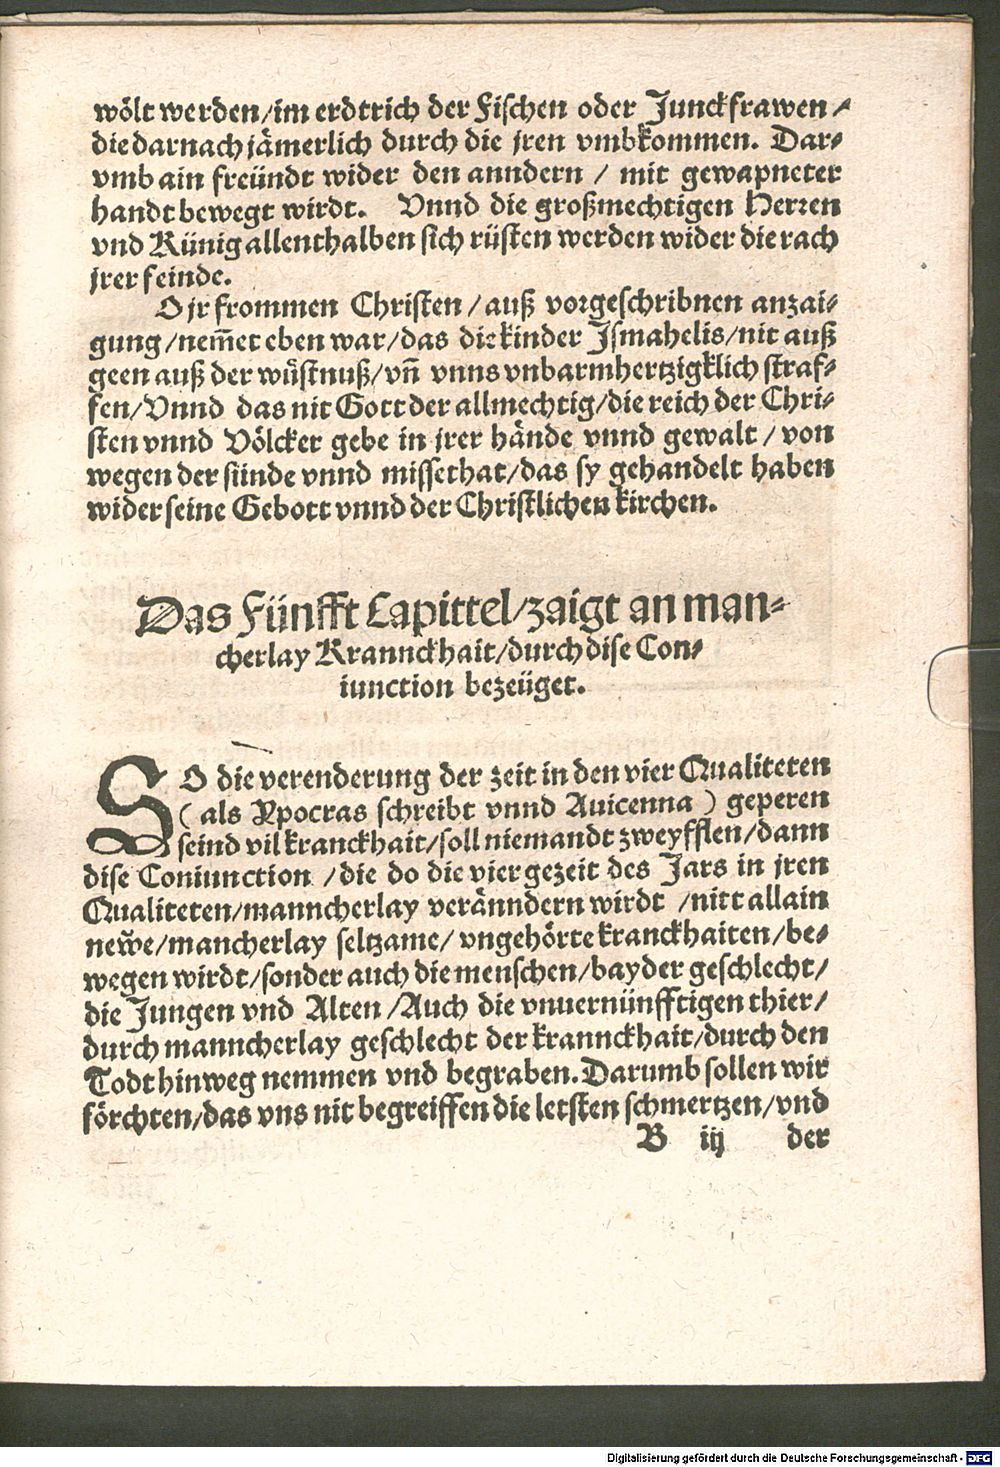 wölt werden/im erdtrich der Fischen oder Junckfrawen/
die darnach jämerlich durch die jren vmbkommen. Dar⸗
vmb ain freündt wider den anndern / mit gewapneter
handt bewegt wirdt. Vnnd die großmechtigen Herren
vnd Künig allenthalben sich rüsten werden wider die rach
jrer feinde.
O jr frommen Christen /auß vorgeschribnen anzai⸗
gung/nem̄et eben war/das die kinder Jsmahelis/nit auß
geen auß der wüstnuß/vn̄ vnns vnbarmhertzigklich straf⸗
fen/Vnnd das nit Gott der allmechtig/die reich der Chri⸗
sten vnnd Völcker gebe in jrer hände vnnd gewalt / von
wegen der sünde vnnd missethat/das sy gehandelt haben
wider seine Gebott vnnd der Christlichen kirchen.
Das Fünfft Capittel/zaigt an man⸗
cherlay Krannckhait/durch dise Con⸗
iunction bezeüget.
SO die verenderung der zeit in den vier Qualiteten
( als Ypocras schreibt vnnd Auicenna ) geperen
seind vil kranckhait/soll niemandt zweyfflen/dann
dise Coniunction /die do die vier gezeit des Jars in jren
Qualiteten/manncherlay veränndern wirdt /nitt allain
new̄e/mancherlay seltzame/vngehörte kranckhaiten/be⸗
wegen wirdt/sonder auch die menschen/bayder geschlecht/
die Jungen vnd Alten /Auch die vnuernünfftigen thier/
durch manncherlay geschlecht der krannckhait/durch den
Todt hinweg nemmen vnd begraben. Darumb sollen wir
förchten/das vns nit begreiffen die letsten schmertzen/vnd
B iij der
Digitalisierung gefördert durch die Deutsche Forschungsgemeinschaft - DFG